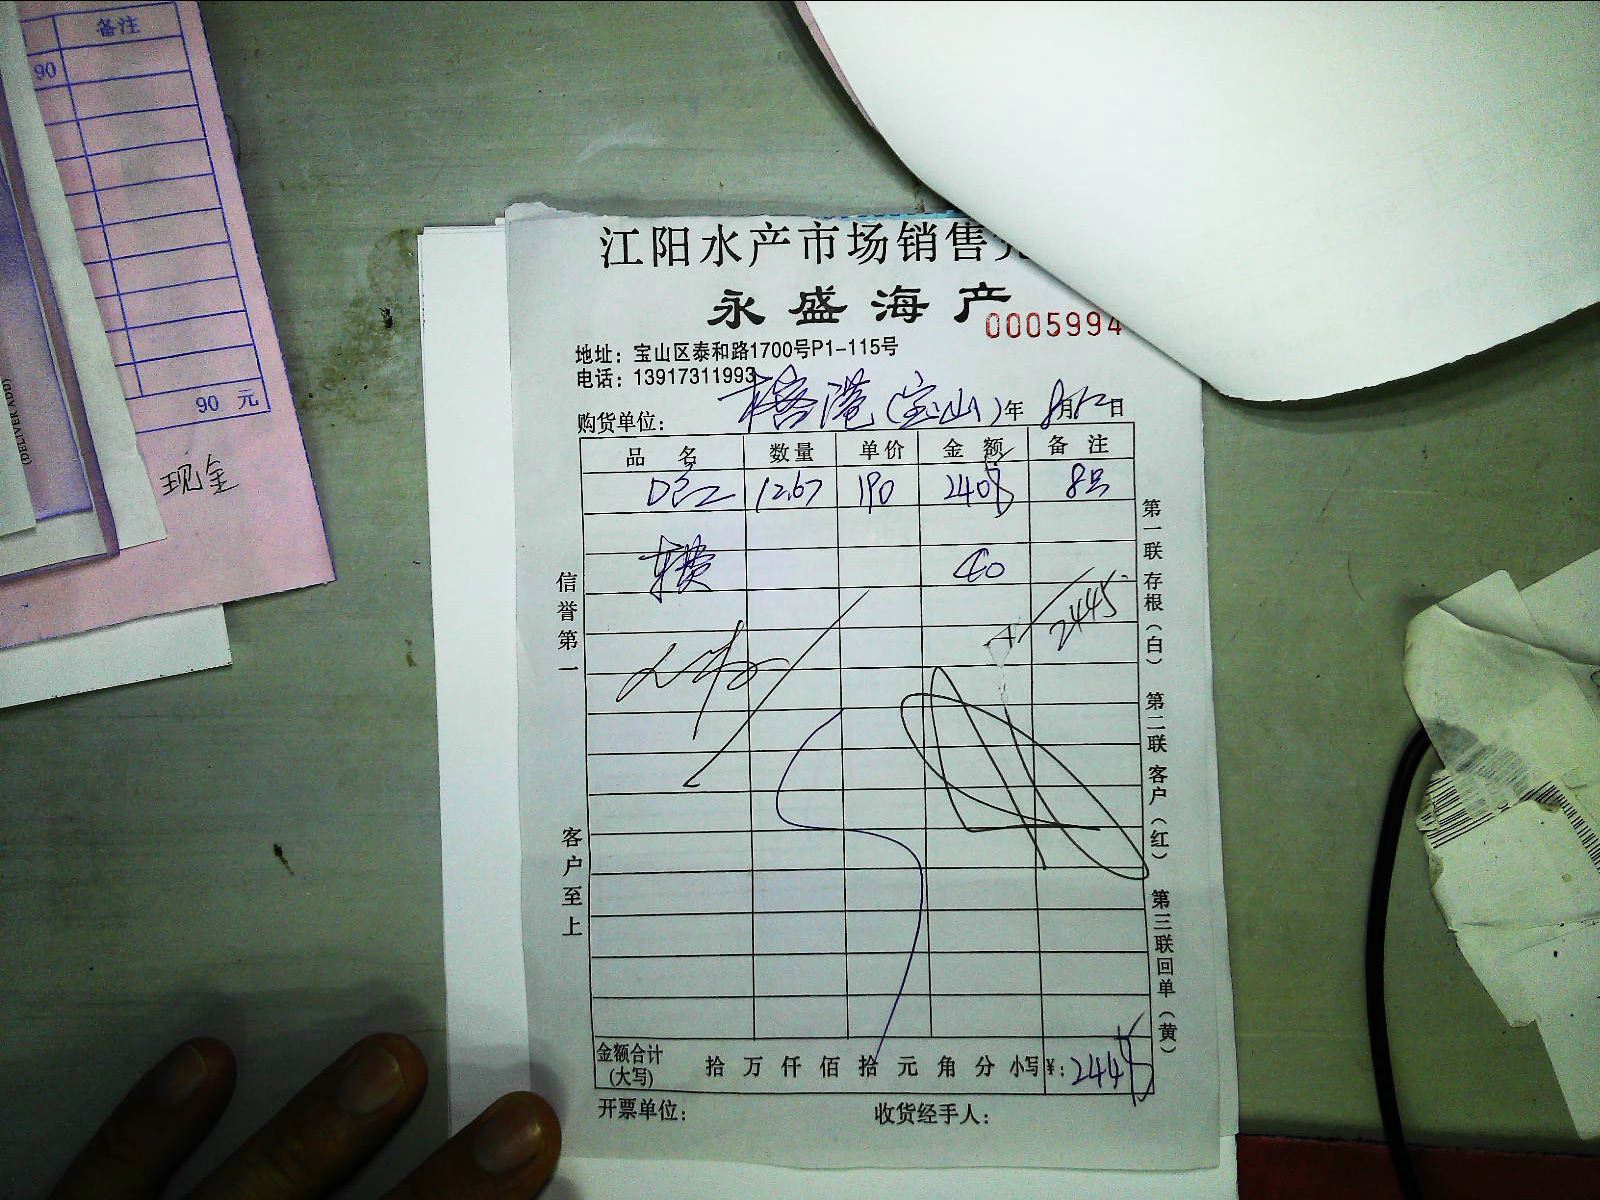 备注
90
90 元
现金
(DELIVER ADD)
江阳水产市场销售
永盛海产
0005994
地址：宝山区泰和路1700号P1-115号
电话：13917311993
购货单位： 港(宝山) 年 8月12日
品名 数量 单价 金额 备注
12.67 190 240 8只
车费 40
2445
信誉第一
客户至上
第一联存根（白） 第二联客户（红） 第三联回单（黄）
金额合计(大写) 拾 万 仟 佰 拾 元 角 分 小写¥: 2445
开票单位： 收货经手人：